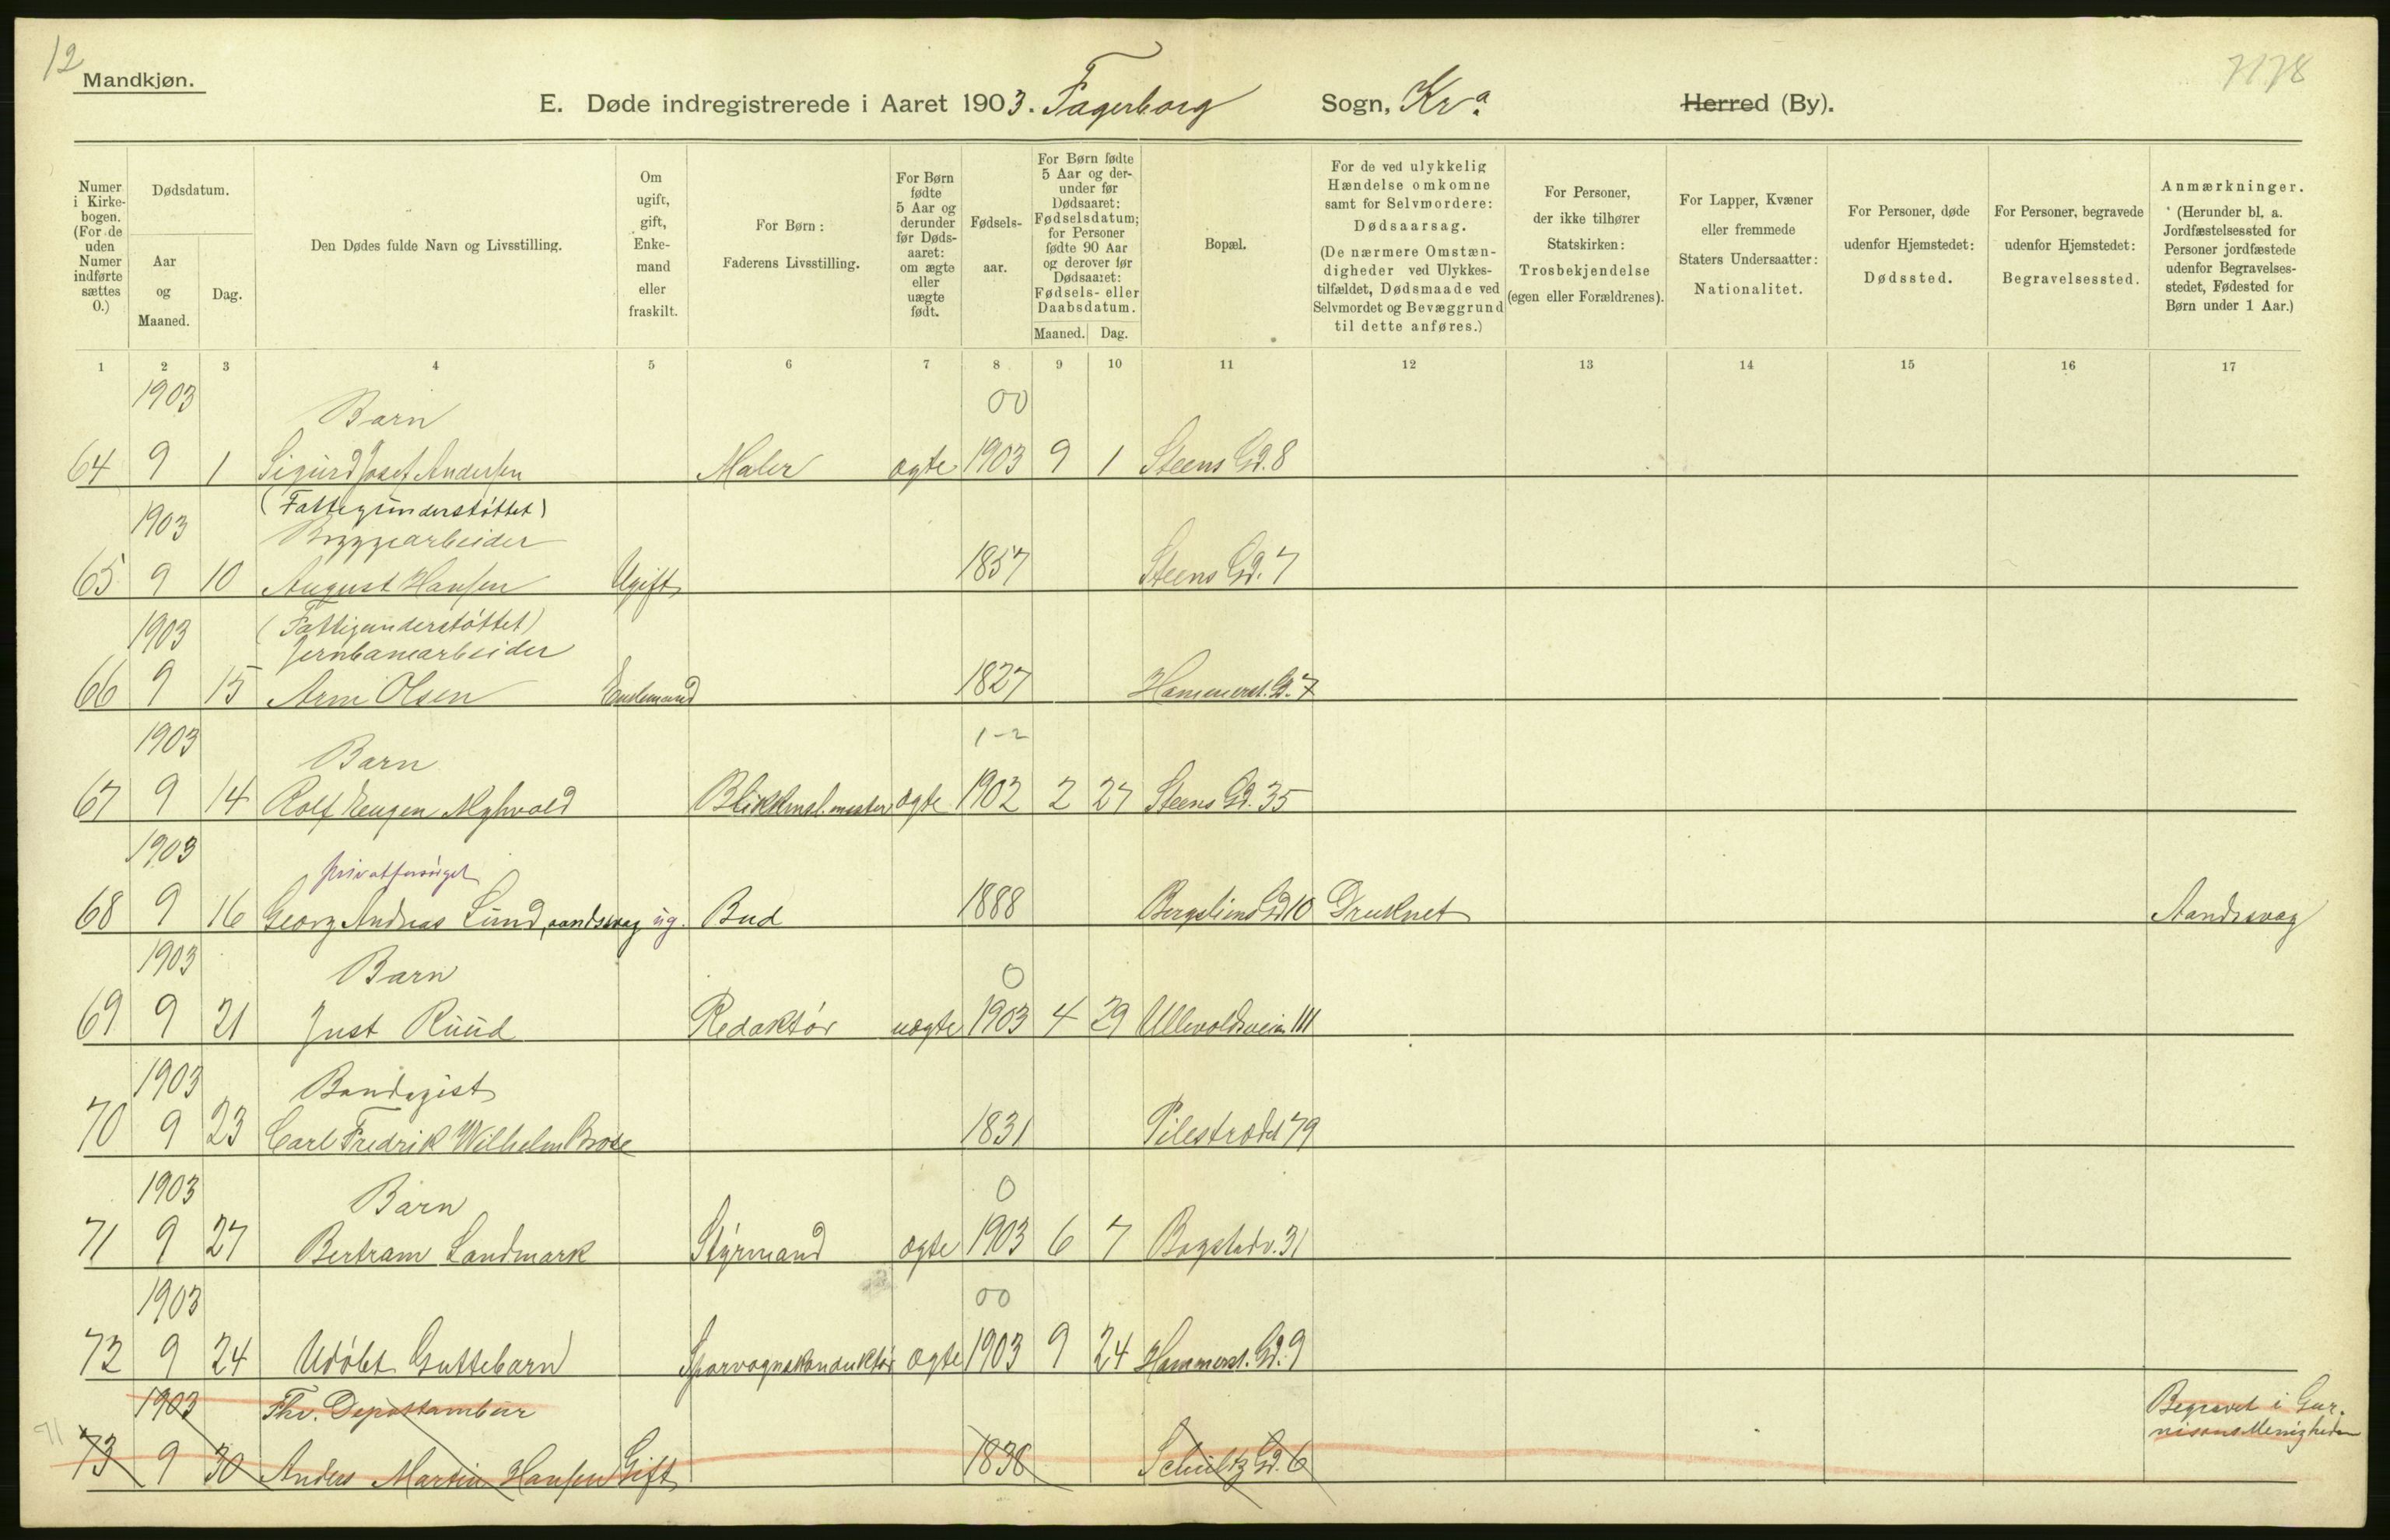 12
7178
Mandkjøn.
E. Døde indregistrerede i Aaret 1903. Fagerborg Sogn, Kra. Herred (By).
Numer i Kirkebogen. (For de uden Numer indførte sættes 0.)
Dødsdatum.
Aar og Maaned.
Dag.
Den Dødes fulde Navn og Livsstilling.
Om ugift, gift, Enkemand eller fraskilt.
For Børn: Faderens Livsstilling.
For Børn fødte 5 Aar og derunder før Dødsaaret: om ægte eller uægte født.
Fødselsaar.
For Børn fødte 5 Aar og derunder før Dødsaaret: Fødselsdatum; for Personer fødte 90 Aar og derover før Dødsaaret: Fødsels- eller Daabsdatum.
Maaned. Dag.
Bopæl.
For de ved ulykkelig Hændelse omkomne samt for Selvmordere: Dødsaarsag. (De nærmere Omstændigheder ved Ulykkestilfældet, Dødsmaade ved Selvmordet og Bevæggrund til dette anføres.)
For Personer, der ikke tilhører Statskirken: Trosbekjendelse (egen eller Forældrenes).
For Lapper, Kvæner eller fremmede Staters Undersaatter: Nationalitet.
For Personer, døde udenfor Hjemstedet: Dødssted.
For Personer, begravede udenfor Hjemstedet: Begravelsessted.
Anmærkninger. (Herunder bl. a. Jordfæstelsessted for Personer jordfæstede udenfor Begravelsesstedet, Fødested for Børn under 1 Aar.)
1 2 3 4 5 6 7 8 9 10 11 12 13 14 15 16 17
1903 Barn 00
64 9 1 Sigurd Josef Andersen Maler ægte 1903 9 1 Steens Gd. 8
(Fattigunderstøttet)
1903 Bryggearbeider
65 9 10 August Hansen Ugift 1857 Steens Gd. 7
(Fattigunderstøttet)
1903 Jernbanearbeider
66 9 15 Arne Olsen Enkemand 1827 Hammerst. Gd. 7
1903 Barn 1-2
67 9 14 Rolf Eugen Myhvold Blikkensl.mester ægte 1902 2 27 Steens Gd. 35
1903 privatforsørget
68 9 16 Georg Andreas Lund, aandssvag ug. Bud 1888 Bergsliens Gd 10 Druknet Aandssvag
1903 Barn 0
69 9 21 Just Ruud Redaktør uægte 1903 4 29 Ullevoldsveien 111
1903 Bandagist
70 9 23 Carl Fredrik Wilhelm 1831 Pilestrædet 79
1903 Barn 0
71 9 27 Bertram Landmark Styrmand ægte 1903 6 7 Bogstadv. 31
1903 00
72 9 24 Udøbt Guttebarn Sporvognskonduktør ægte 1903 9 24 Hammerst. Gd. 9
1903 Fhv. Depottambur Begravet i Gar-
71 73 9 30 Anders Martin Hansen Gift 1838 Schultz Gd. 6 nisons Menigheden